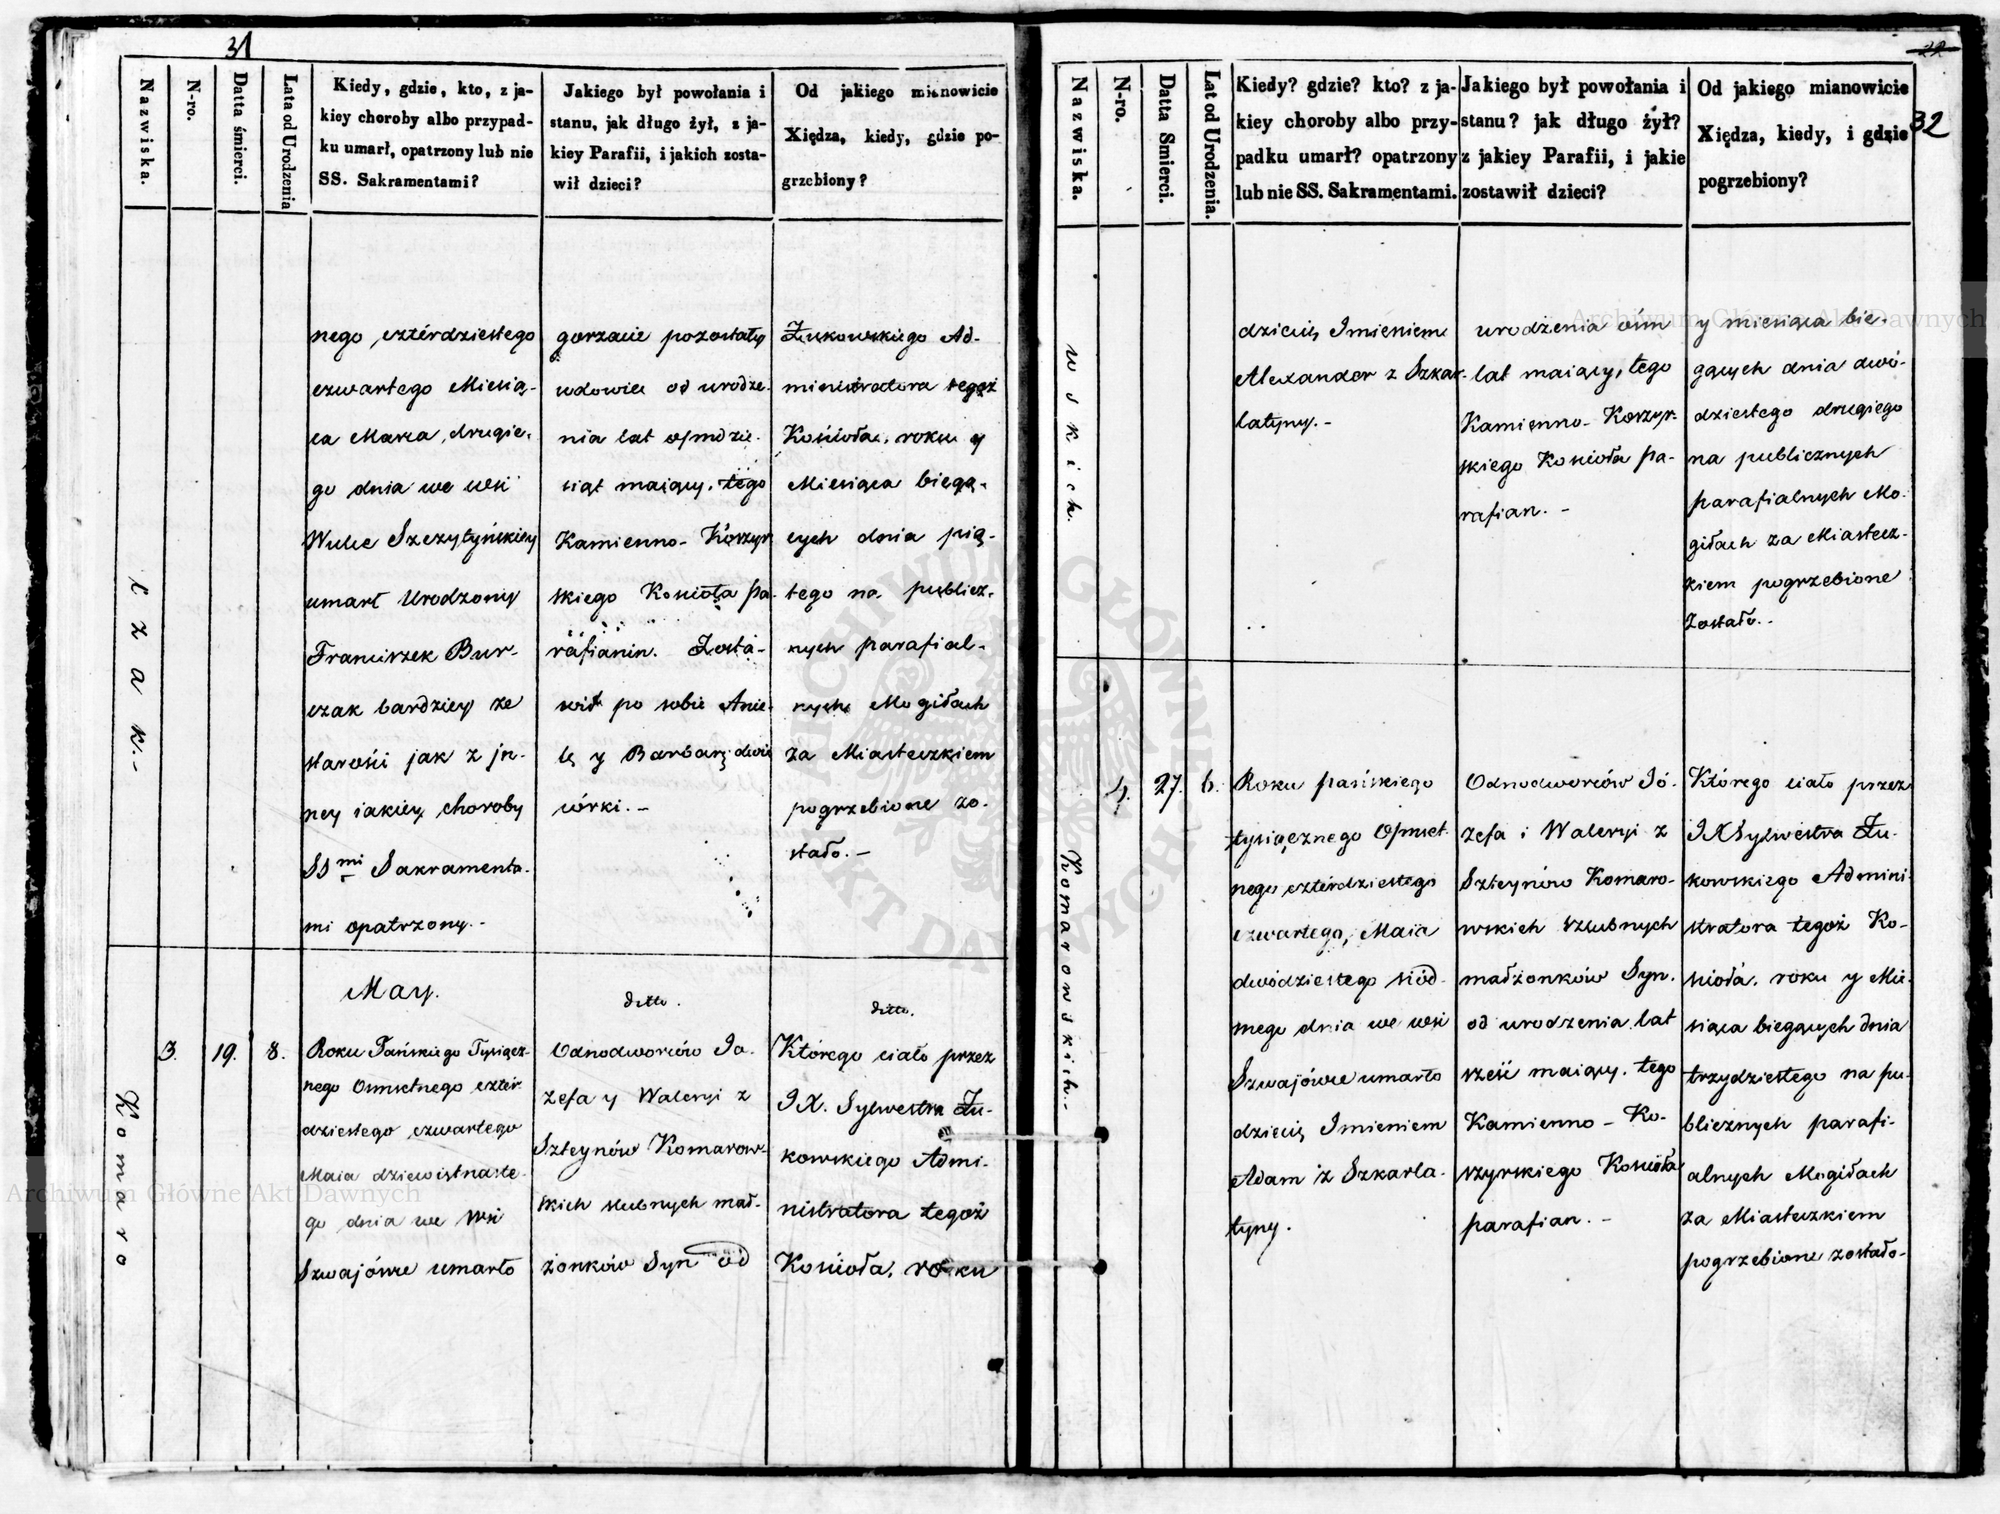 31
Nazwiska.
N-ro.
Datta śmierci.
Lata od Urodzenia
Kiedy, gdzie, kto, z ja-
kiey choroby albo przypad-
ku umarł, opatrzony lub nie
SS. Sakramentami?
Jakiego był powołania i
stanu, jak długo żył, z ja-
kiey Parafii, i jakich zosta-
wił dzieci?
Od jakiego mianowicie
Xiędza, kiedy, gdzie po-
grzebiony?
czak.-
nego czterdziestego
czwartego Miesią-
ca Marca, drugie-
go dnia we wsi
Wulce Szczytyńskiey
umarł Urodzony
Franciszek Bur-
czak bardziey ze
starości jak z in-
ney iakiey choroby
SSmi Sakramenta-
mi opatrzony.-
gorzacie pozostały
wdowiec od urodze-
nia lat ośmdzie-
siąt maiący, tego
Kamienno-Koszyr
skiego Kościoła Pa-
rafianin. Zosta-
wił po sobie Anie-
lę y Barbarę dwie
córki.-
Żukowskiego Ad-
ministratora tegoż
Kościoła, roku y
Miesiąca bieżą-
cych dnia pią-
tego na publicz-
nych parafial-
nych Mogiłach
za Miasteczkiem
pogrzebione zo-
stało.-
Komaro
3.
19.
8.
May.
Roku Pańskiego Tysiącz-
nego Osmsetnego czter
dziestego czwartego
Maia dziewiętnaste-
go dnia we wsi
Szwajówce umarło
ditto.
Odnodworców Jó-
zefa y Waleryi z
Szteynów Komarow-
skich ślubnych mał-
żonków Syn od
ditto.
Którego ciało przez
JX. Sylwestra Żu-
kowskiego Admi-
nistratora tegoż
Kościoła, roku
22
32
Nazwiska.
N-ro.
Datta Smierci.
Lat od Urodzenia.
Kiedy? gdzie? kto? z ja-
kiey choroby albo przy-
padku umarł? opatrzony
lub nie SS. Sakramentami.
Jakiego był powołania i
stanu? jak długo żył?
z jakiey Parafii, i jakie
zostawił dzieci?
Od jakiego mianowicie
Xiędza, kiedy, i gdzie
pogrzebiony?
wskich.
dziecię Imieniem
Alexander z Szkar-
latyny.-
urodzenia ośm
lat maiący, tego
Kamienno-Koszyr-
skiego Kościoła Pa-
rafian.-
y miesiąca bie-
żących dnia dwó-
dziestego drugiego
na publicznych
parafialnych Mo-
giłach za Miastecz-
kiem pogrzebione
Zostało.-
Komarowskich.-
4.
27.
6.
Roku Pańskiego
tysiącznego Ośmset-
nego czterdziestego
czwartego, Maia
dwódziestego siód-
mego dnia we wsi
Szwajówce umarło
dziecię Imieniem
Adam z Szkarla-
tyny.
Odnodworców Jó-
zefa i Waleryi z
Szteynów Komaro-
wskich szlubnych
małżonków Syn,
od urodzenia lat
sześć maiący, tego
Kamienno-Ko-
szyrskiego Kościoła
parafian.-
Którego ciało przez
JX Sylwestra Żu-
kowskiego Admini-
stratora tegoż Ko-
ścioła, roku y Mie-
siąca bieżących dnia
trzydziestego na pu-
blicznych parafi-
alnych Mogiłach
za Miasteczkiem
pogrzebione zostało-
Archiwum Główne Akt Dawnych
Archiwum Główne Akt Dawnych
ARCHIWUM GŁÓWNE AKT DAWNYCH